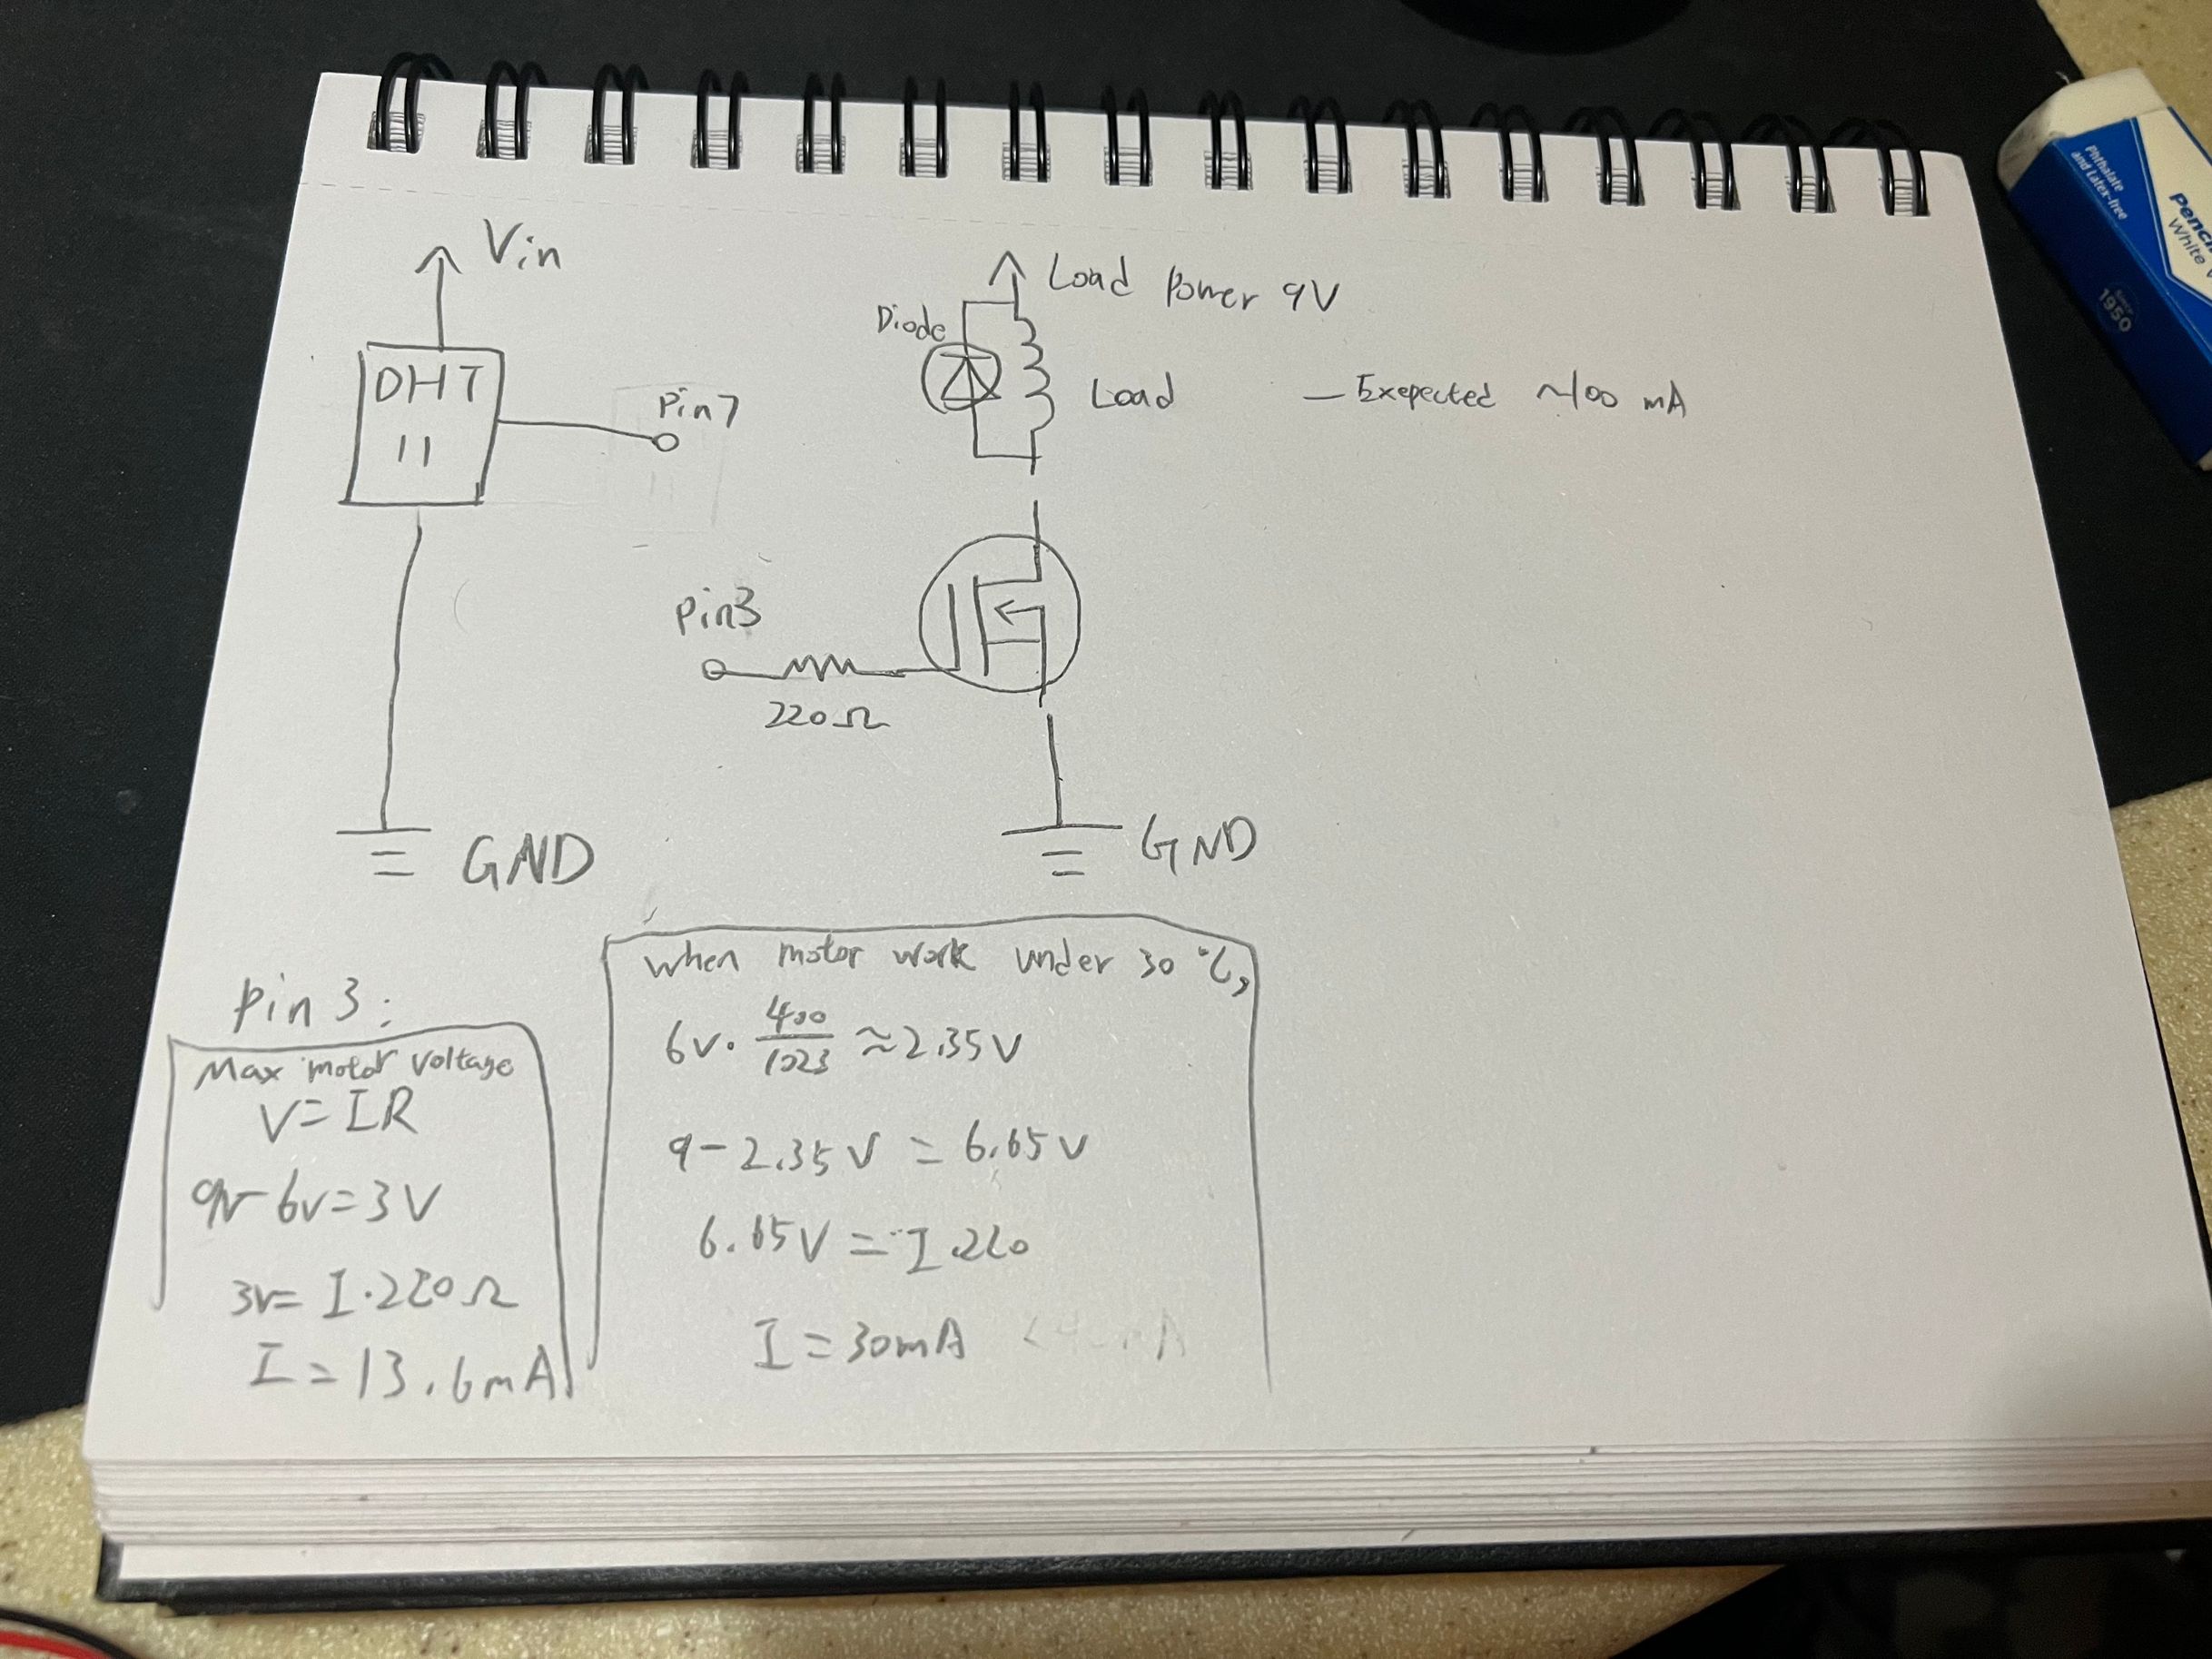 Vin
DHT
11
Pin7
GND
Load Power 9V
Diode
Load
— Exepected ~100 mA
Pin3
220Ω
GND
Pin 3:
Max motor voltage
V=IR
9V-6V=3V
3V= I·220Ω
I=13.6mA
when motor work under 30 °C,
6V· 400/1023 ≈2.35V
9-2.35V = 6.65V
6.65V = I.220
I=30mA
Phthalate
and Latex-free
White
Since
1950